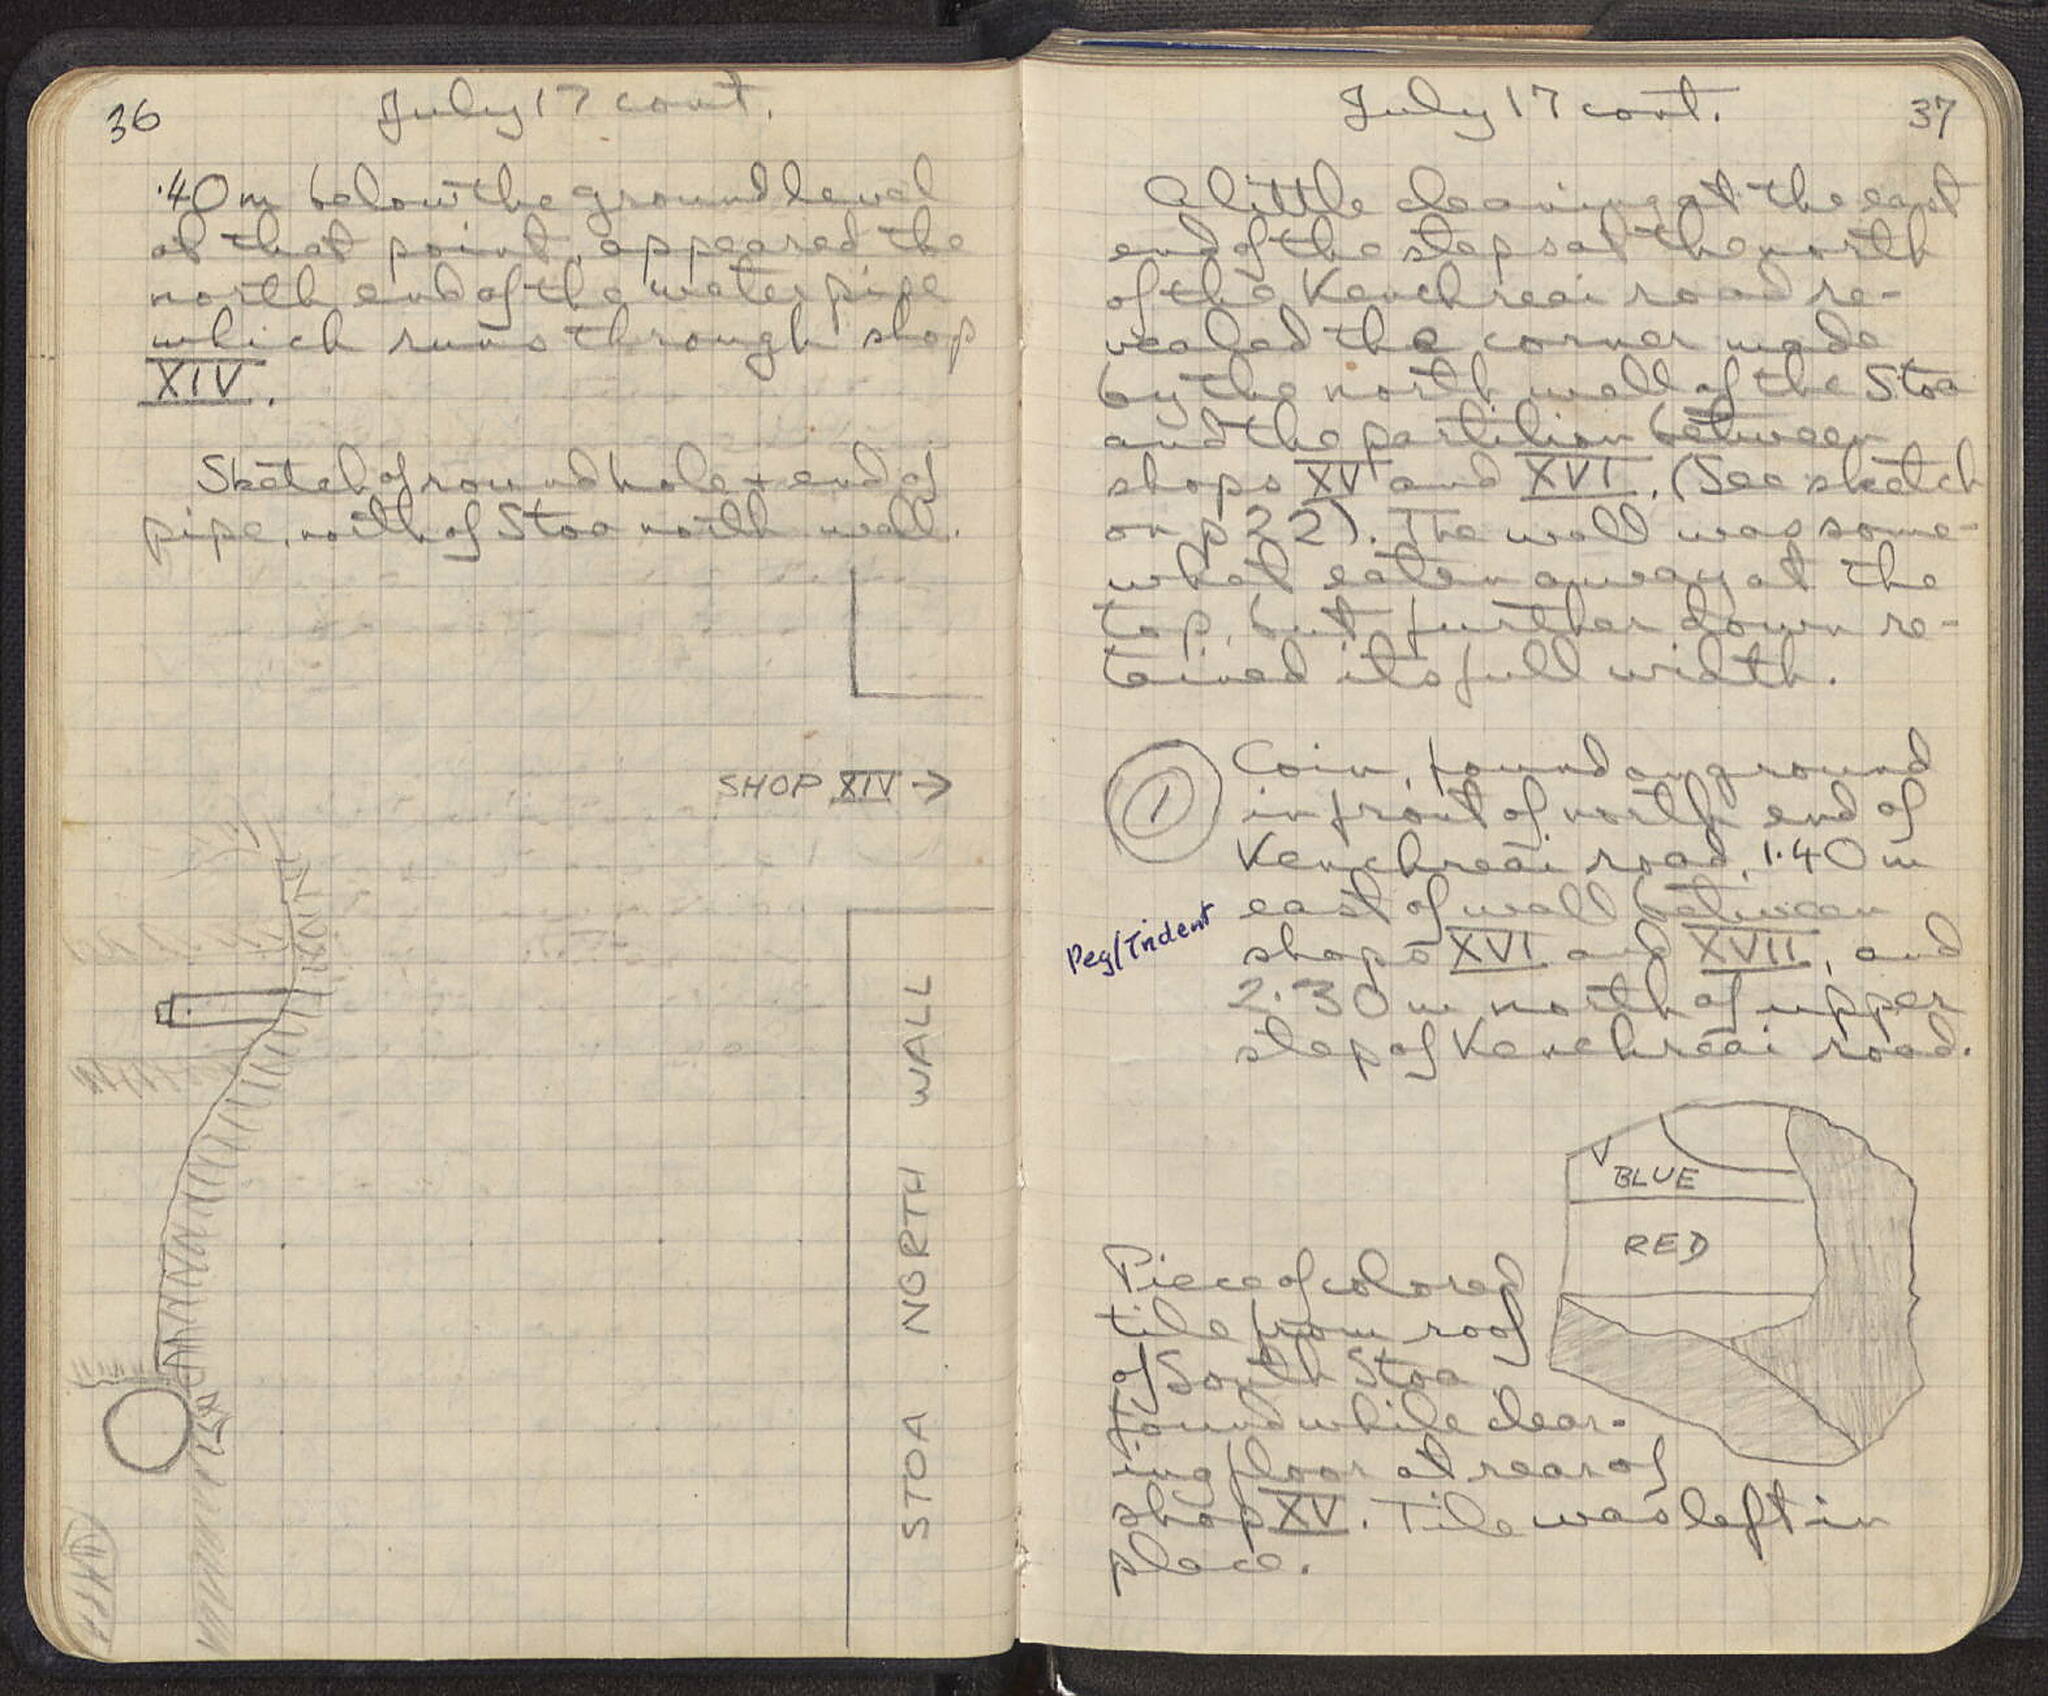 36
July 17 cont.
.40m below the ground level
at that point, appeared the
north end of the water pipe
which runs through shop
XIV.
Sketch of round hole + end of
pipe, north of Stoa north wall.
SHOP XIV →
STOA NORTH WALL
July 17 cont.
37
A little cleaning at the east
end of the steps at the north
of the Kenchreai road re-
vealed the corner made
by the north wall of the Stoa
and the partition between
shops XV and XVI. (See sketch
on p 22). The wall was some-
what eaten away at the
top, but further down re-
tained its full width.
1
Coin, found on ground
in front of north end of
Kenchreai road, 1.40m
east of wall between
shops XVI and XVII, and
2.30m north of upper
step of Kenchreai road.
Peg/Trident
BLUE
RED
Piece of colored
tile from roof
of South Stoa
found while clear-
ing floor at rear of
shop XV. Tile was left in
place.